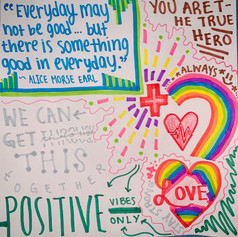 "Everyday may
not be good... but
there is something
good in everyday."
~ ALICE MORSE EARL
YOU ARE T-
HE TRUE
HERO
ALWAYS
WE CAN
GET
THIS
TOGETHER
LOVE
POSITIVE
VIBES
ONLY